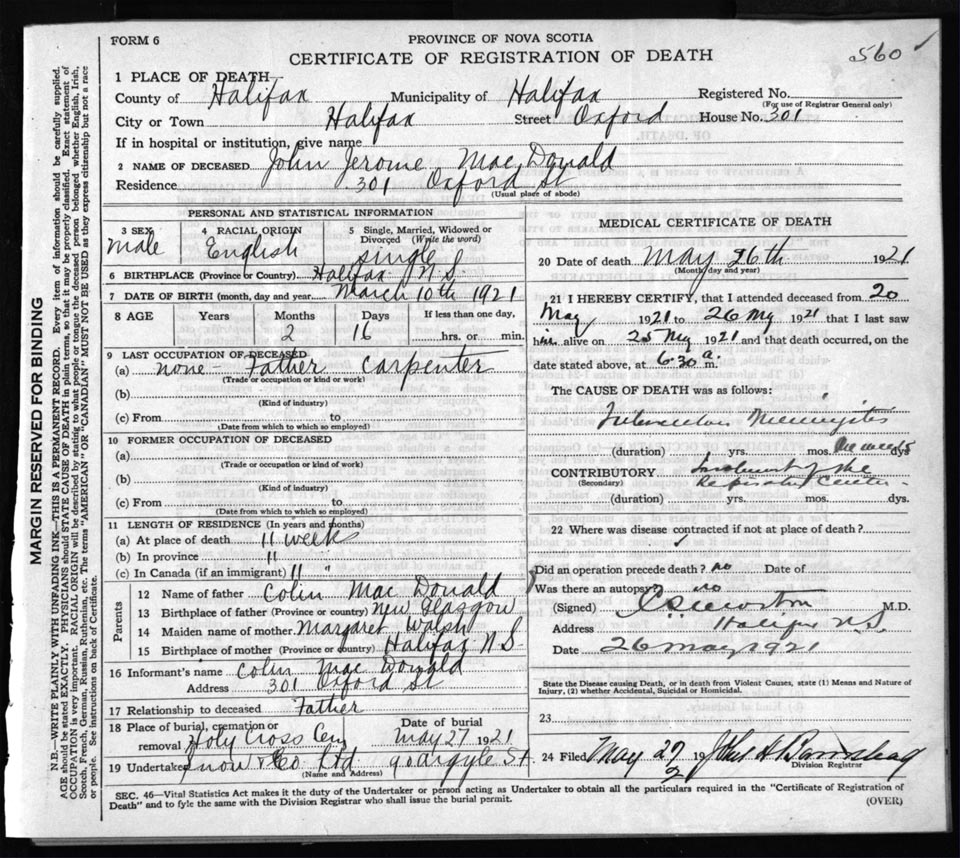 FORM 6
PROVINCE OF NOVA SCOTIA
CERTIFICATE OF REGISTRATION OF DEATH
560
1 PLACE OF DEATH
County of Halifax Municipality of Halifax Registered No.
(For use of Registrar General only)
City or Town Halifax Street Oxford House No. 301
If in hospital or institution, give name
2 NAME OF DECEASED John Jerome Mac Donald
Residence 301 Oxford St
(Usual place of abode)
PERSONAL AND STATISTICAL INFORMATION
3 SEX 4 RACIAL ORIGIN 5 Single, Married, Widowed or Divorced (Write the word)
Male English single
6 BIRTHPLACE (Province or Country) Halifax N.S.
7 DATE OF BIRTH (month, day and year) March 10th 1921
8 AGE Years Months Days If less than one day,
2 16 hrs. or min.
9 LAST OCCUPATION OF DECEASED
(a) none - Father carpenter
(Trade or occupation or kind or work)
(b)
(Kind of industry)
(c) From to
(Date from which to which so employed)
10 FORMER OCCUPATION OF DECEASED
(a)
(Trade or occupation or kind of work)
(b)
(Kind of industry)
(c) From to
(Date from which to which so employed)
11 LENGTH OF RESIDENCE (In years and months)
(a) At place of death 11 weeks
(b) In province 11 "
(c) In Canada (if an immigrant) 11 "
Parents
12 Name of father Colin Mac Donald
13 Birthplace of father (Province or country) New Glasgow
14 Maiden name of mother Margaret Walsh
15 Birthplace of mother (Province or country) Halifax N S
16 Informant's name Colin Mac Donald
Address 301 Oxford St
17 Relationship to deceased Father
18 Place of burial, cremation or removal Holy Cross Cem Date of burial May 27 1921
19 Undertaker Snow & Co Ltd 90 Argyle St
(Name and Address)
MEDICAL CERTIFICATE OF DEATH
20 Date of death May 26th 1921
(Month day and year)
21 I HEREBY CERTIFY, that I attended deceased from 20
May 1921 to 26 My 1921 that I last saw
him alive on 25 My 1921 and that death occurred, on the
date stated above, at 6.30 a m.
The CAUSE OF DEATH was as follows:
Meningitis
(duration) yrs. mos. dys.
CONTRIBUTORY of the
(Secondary) Respiratory
(duration) yrs. mos. dys.
22 Where was disease contracted if not at place of death?
Did an operation precede death? no Date of
Was there an autopsy? no
(Signed) M.D.
Address Halifax N.S.
Date 26 May 1921
State the Disease causing Death, or in death from Violent Causes, state (1) Means and Nature of Injury, (2) whether Accidental, Suicidal or Homicidal.
23
24 Filed May 27 19
2
Division Registrar
SEC. 46—Vital Statistics Act makes it the duty of the Undertaker or person acting as Undertaker to obtain all the particulars required in the "Certificate of Registration of
Death" and to fyle the same with the Division Registrar who shall issue the burial permit.
(OVER)
MARGIN RESERVED FOR BINDING
N.B.—WRITE PLAINLY WITH UNFADING INK—THIS IS A PERMANENT RECORD. Every item of information should be carefully supplied.
AGE should be stated EXACTLY. PHYSICIANS should STATE CAUSE OF DEATH in plain terms, so that it may be properly classified. Exact statement of
OCCUPATION is very important. RACIAL ORIGIN will be described by stating to what people or tongue the deceased person belonged whether English, Irish,
Scotch, French, German, Russian, Ruthenian, etc. The terms "AMERICAN" OR "CANADIAN" MUST NOT BE USED as they express citizenship but not a race
or people. See instructions on back of Certificate.